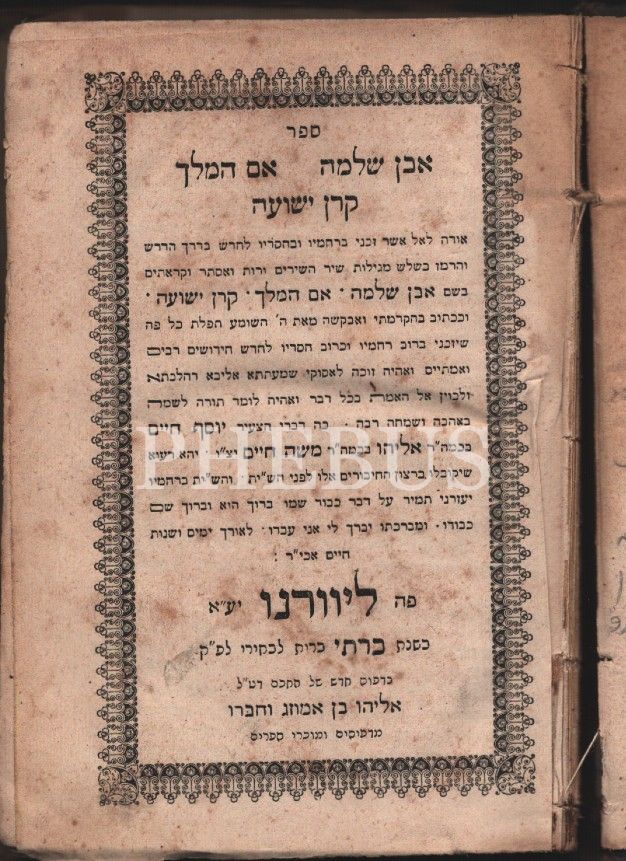 ספר
אבן שלמה אם המלך
קרן ישועה
אודה לאל אשר זכני ברחמיו ובחסדיו לחדש בדרך הדרש
והרמז בשלש מגילות שיר השירים ורות ואסתר וקראתים
בשם אבן שלמה · אם המלך · קרן ישועה ·
וככתוב בהקדמתי ואבקשה מאת ה' השומע תפלת כל פה
שיזכני ברוב רחמיו וכרוב חסדיו לחדש חידושים רבים
ואמתיים ואהיה זוכה לאסוקי שמעתתא אליבא דהלכתא
ולכוין אל האמת בכל דבר ואהיה לומד תורה לשמה
באהבה ושמחה רבה · כה דברי הצעיר יוסף חיים
בכמה"ר אליהו בכמה"ר משה חיים יצ"ו · יהא רעוא
שיקובלו ברצון החיבורים אלו לפני השי"ת · והשי"ת ברחמיו
יעזרני תמיד על דבר כבוד שמו ברוך הוא וברוך שם
כבודו · ומברכתו יברך לי אני עבדו · לאורך ימים ושנות
חיים אכי"ר :
פה ליוורנו יע"א
בשנת ברתי ברית לבחירי לפ"ק
בדפוס חדש של החכם
אליהו בן אמוזג וחברו
מדפיסים ומוכרי ספרים
PHEBUS